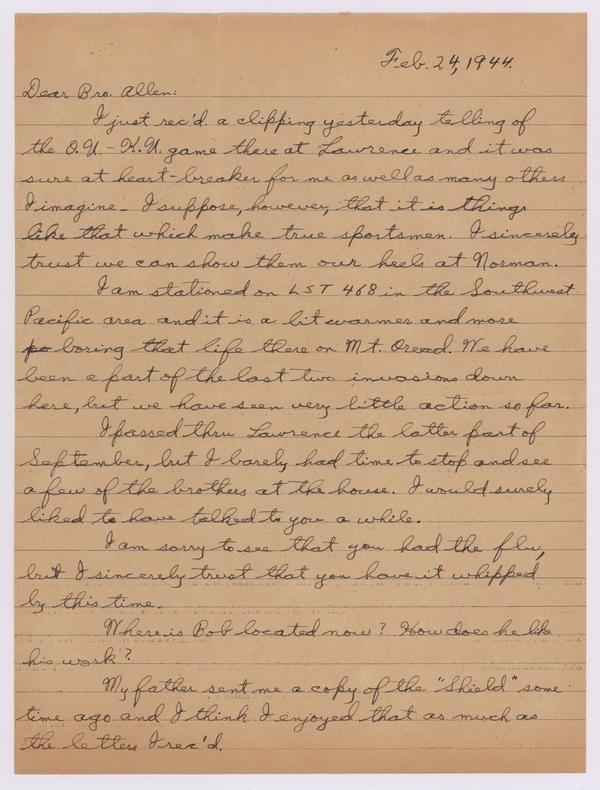 Feb. 24, 1944.
Dear Bro. Allen:
I just rec'd. a clipping yesterday telling of
the O.U.-K.U. game there at Lawrence and it was
sure at heart-breaker for me as well as many others
I imagine. I suppose, however, that it is things
like that which make true sportsmen. I sincerely
trust we can show them our heels at Norman.
I am stationed on LST 468 in the Southwest
Pacific area and it is a bit warmer and more
boring that life there on Mt. Oread. We have
been a part of the last two invasions down
here, but we have seen very little action so far.
I passed thru Lawrence the latter part of
September, but I barely had time to stop and see
a few of the brothers at the house. I would surely
liked to have talked to you a while.
I am sorry to see that you had the flu,
but I sincerely trust that you have it whipped
by this time.
Where is Bob located now? How does he like
his work?
My father sent me a copy of the "Shield" some
time ago and I think I enjoyed that as much as
the letters I rec'd.